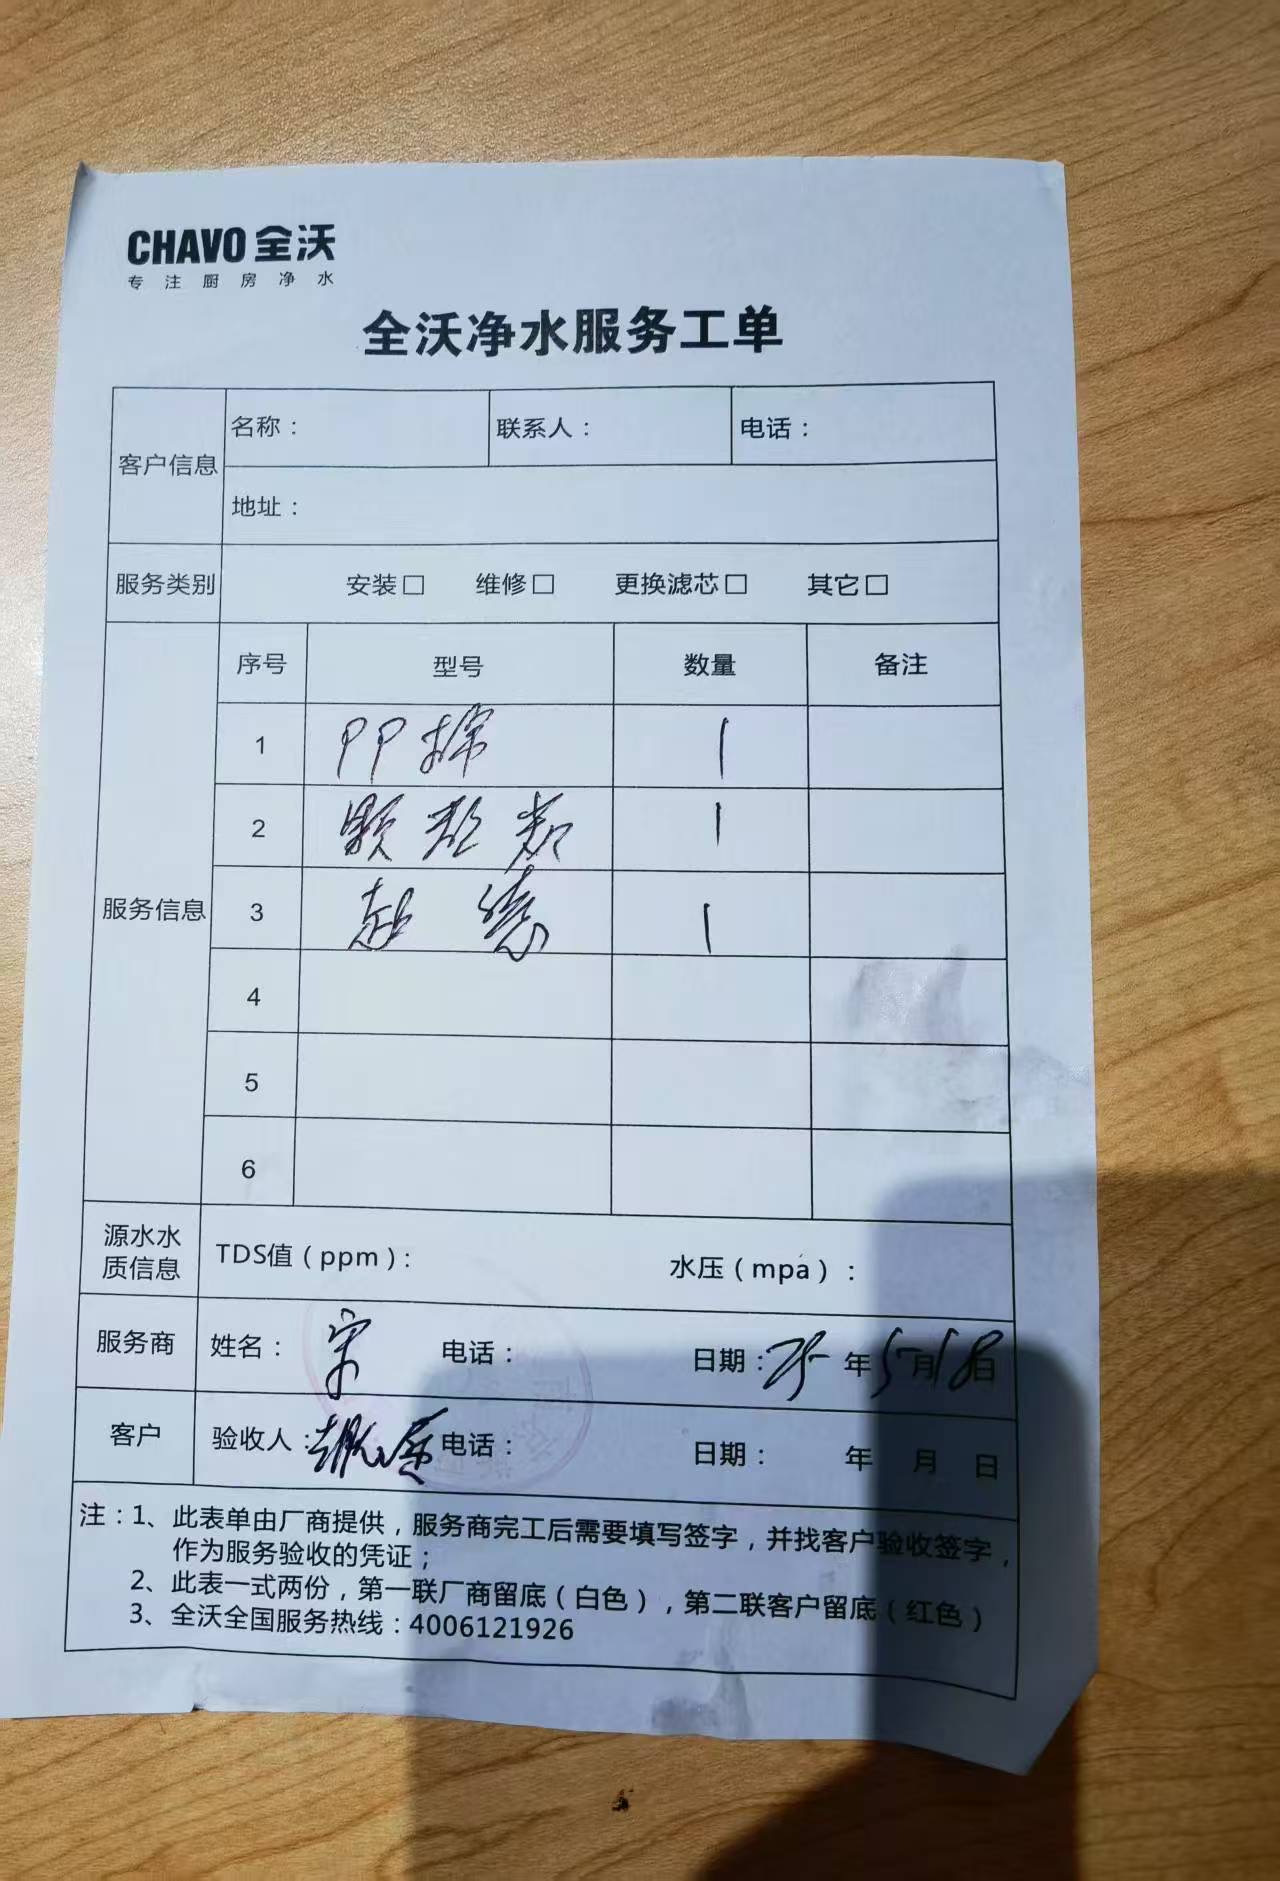 CHAVO 全沃
专注厨房净水
全沃净水服务工单
客户信息 名称： 联系人： 电话：
地址：
服务类别 安装□ 维修□ 更换滤芯□ 其它□
服务信息
序号 型号 数量 备注
1 PP棉 1
2 颗粒炭 1
3 超滤 1
4
5
6
源水水质信息 TDS值（ppm）： 水压（mpa）：
服务商 姓名：宋 电话： 日期：25年5月18日
客户 验收人： 电话： 日期： 年 月 日
注：1、此表单由厂商提供，服务商完工后需要填写签字，并找客户验收签字，
作为服务验收的凭证；
2、此表一式两份，第一联厂商留底（白色），第二联客户留底（红色）
3、全沃全国服务热线：4006121926